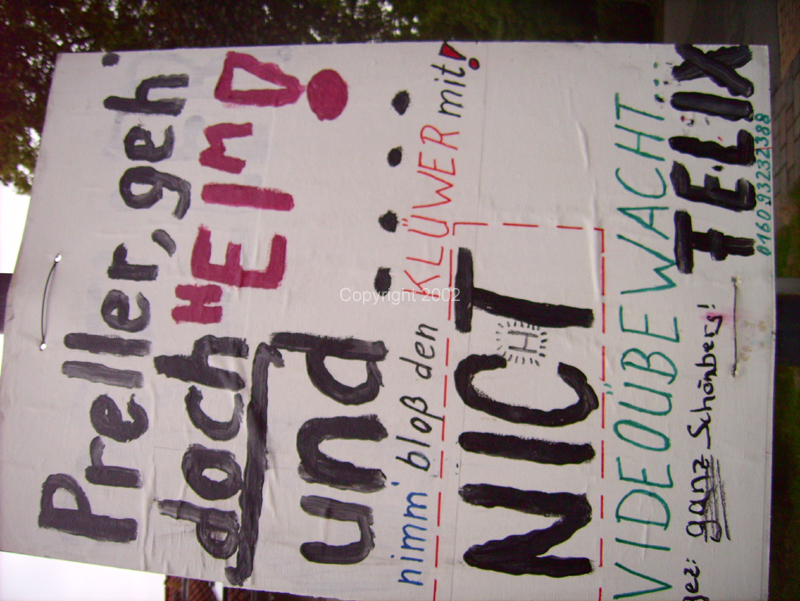 Preller, geh'
doch HEIM!
und ....
nimm' bloß den KLÜWER mit!
NICHT
VIDEOÜBEWACHT...
gez: ganz Schönberg!
FELIX
0160 93232388
Copyright 2002